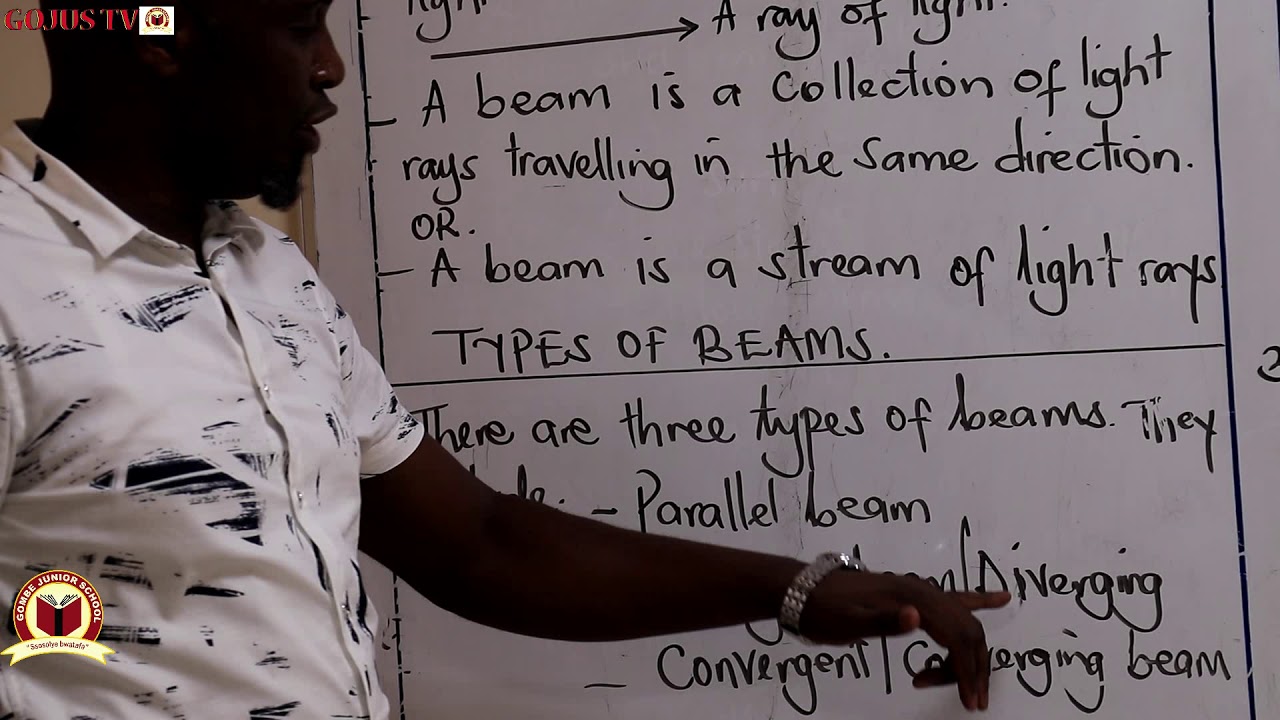 GOJUS TV
light
A ray of light.
- A beam is a collection of light
rays travelling in the same direction.
OR.
- A beam is a stream of light rays
TYPES OF BEAMS.
There are three types of beams. They
- Parallel beam
/Diverging
- Convergent/Converging beam
GOMBE JUNIOR SCHOOL
"Ssosolye bwatafa"